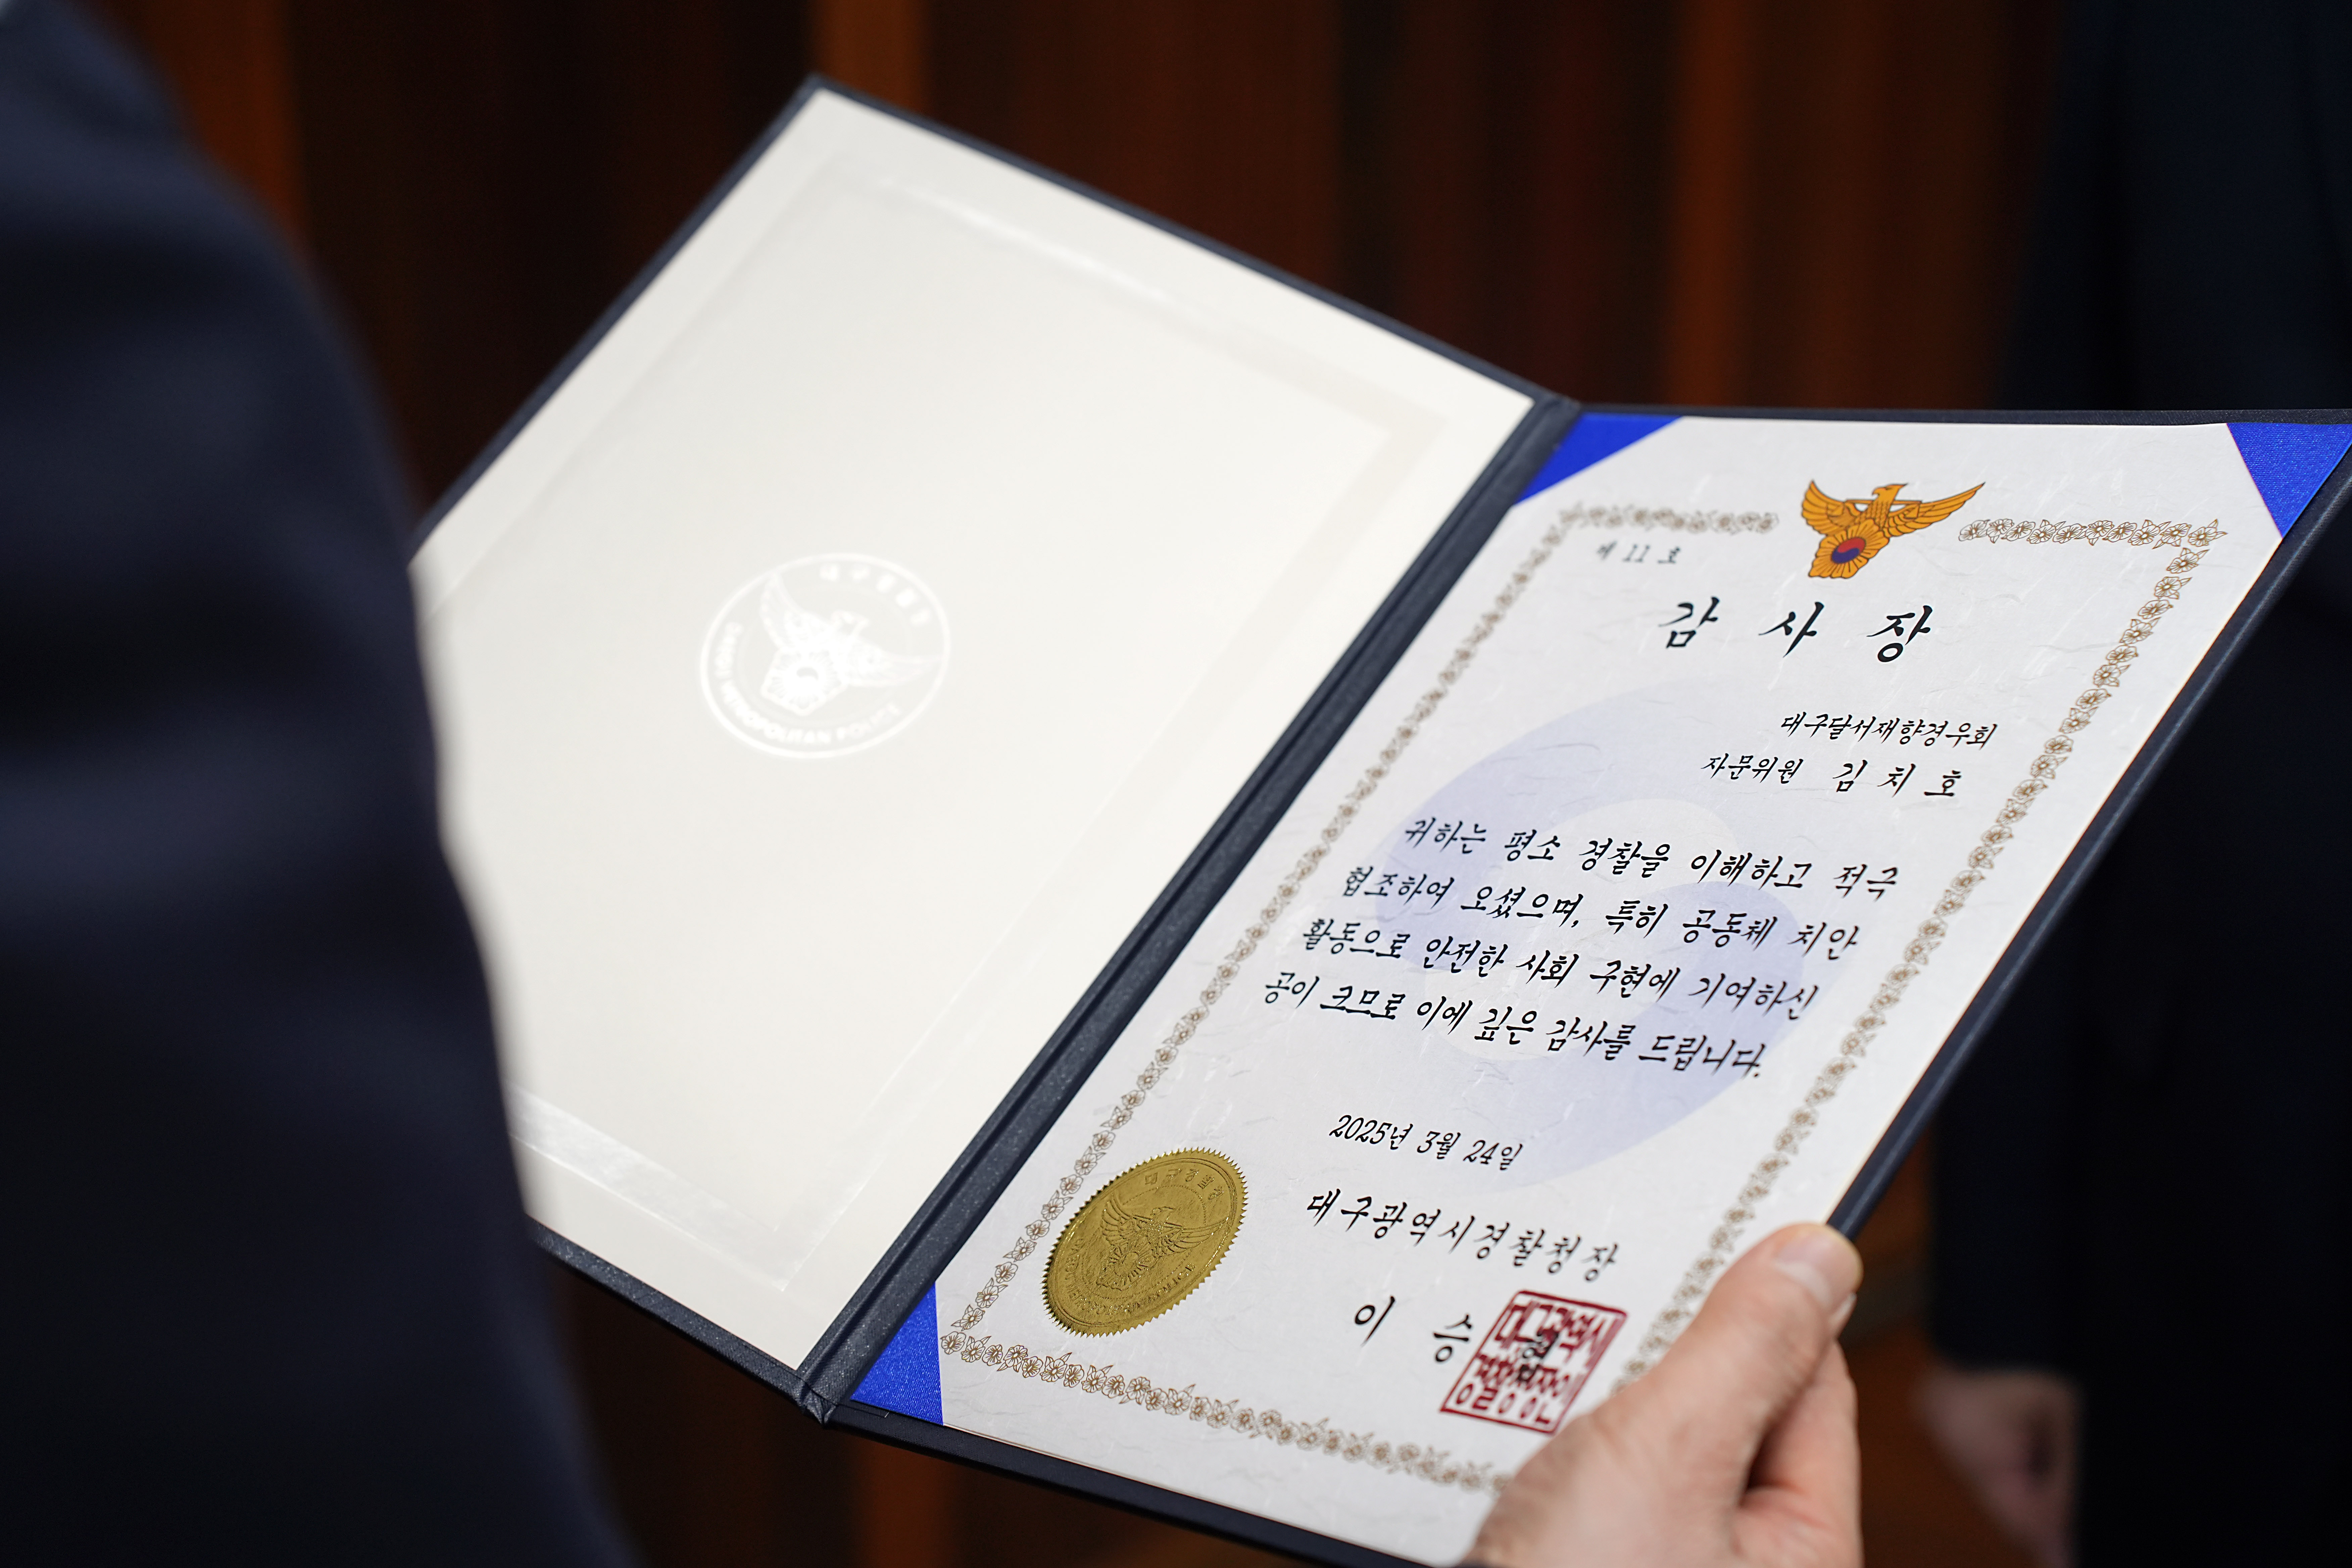 대구경찰청
DAEGU METROPOLITAN POLICE
제 11 호
감 사 장
대구달서재향경우회
자문위원 김 치 호
귀하는 평소 경찰을 이해하고 적극
협조하여 오셨으며, 특히 공동체 치안
활동으로 안전한 사회 구현에 기여하신
공이 크므로 이에 깊은 감사를 드립니다.
2025년 3월 24일
대구광역시경찰청장
이 승
대구광역시
경찰청장인
대구경찰청